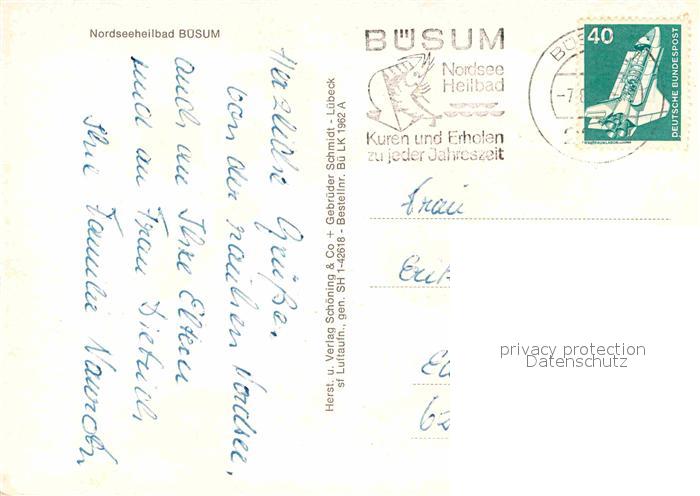 Nordseeheilbad BÜSUM
Herzliche Grüße,
von der rauhen Nordsee,
auch an Ihre Eltern
und an Frau Dietrich,
Ihre Familie
Herst. u. Verlag Schöning & Co + Gebrüder Schmidt - Lübeck
sf Luftaufn., gen. SH 1-42618 - Bestellnr. Bü LK 1962 A
BÜSUM
Nordsee
Heilbad
Kuren und Erholen
zu jeder Jahreszeit
BÜS
-7.
40
DEUTSCHE BUNDESPOST
Frau
privacy protection
Datenschutz